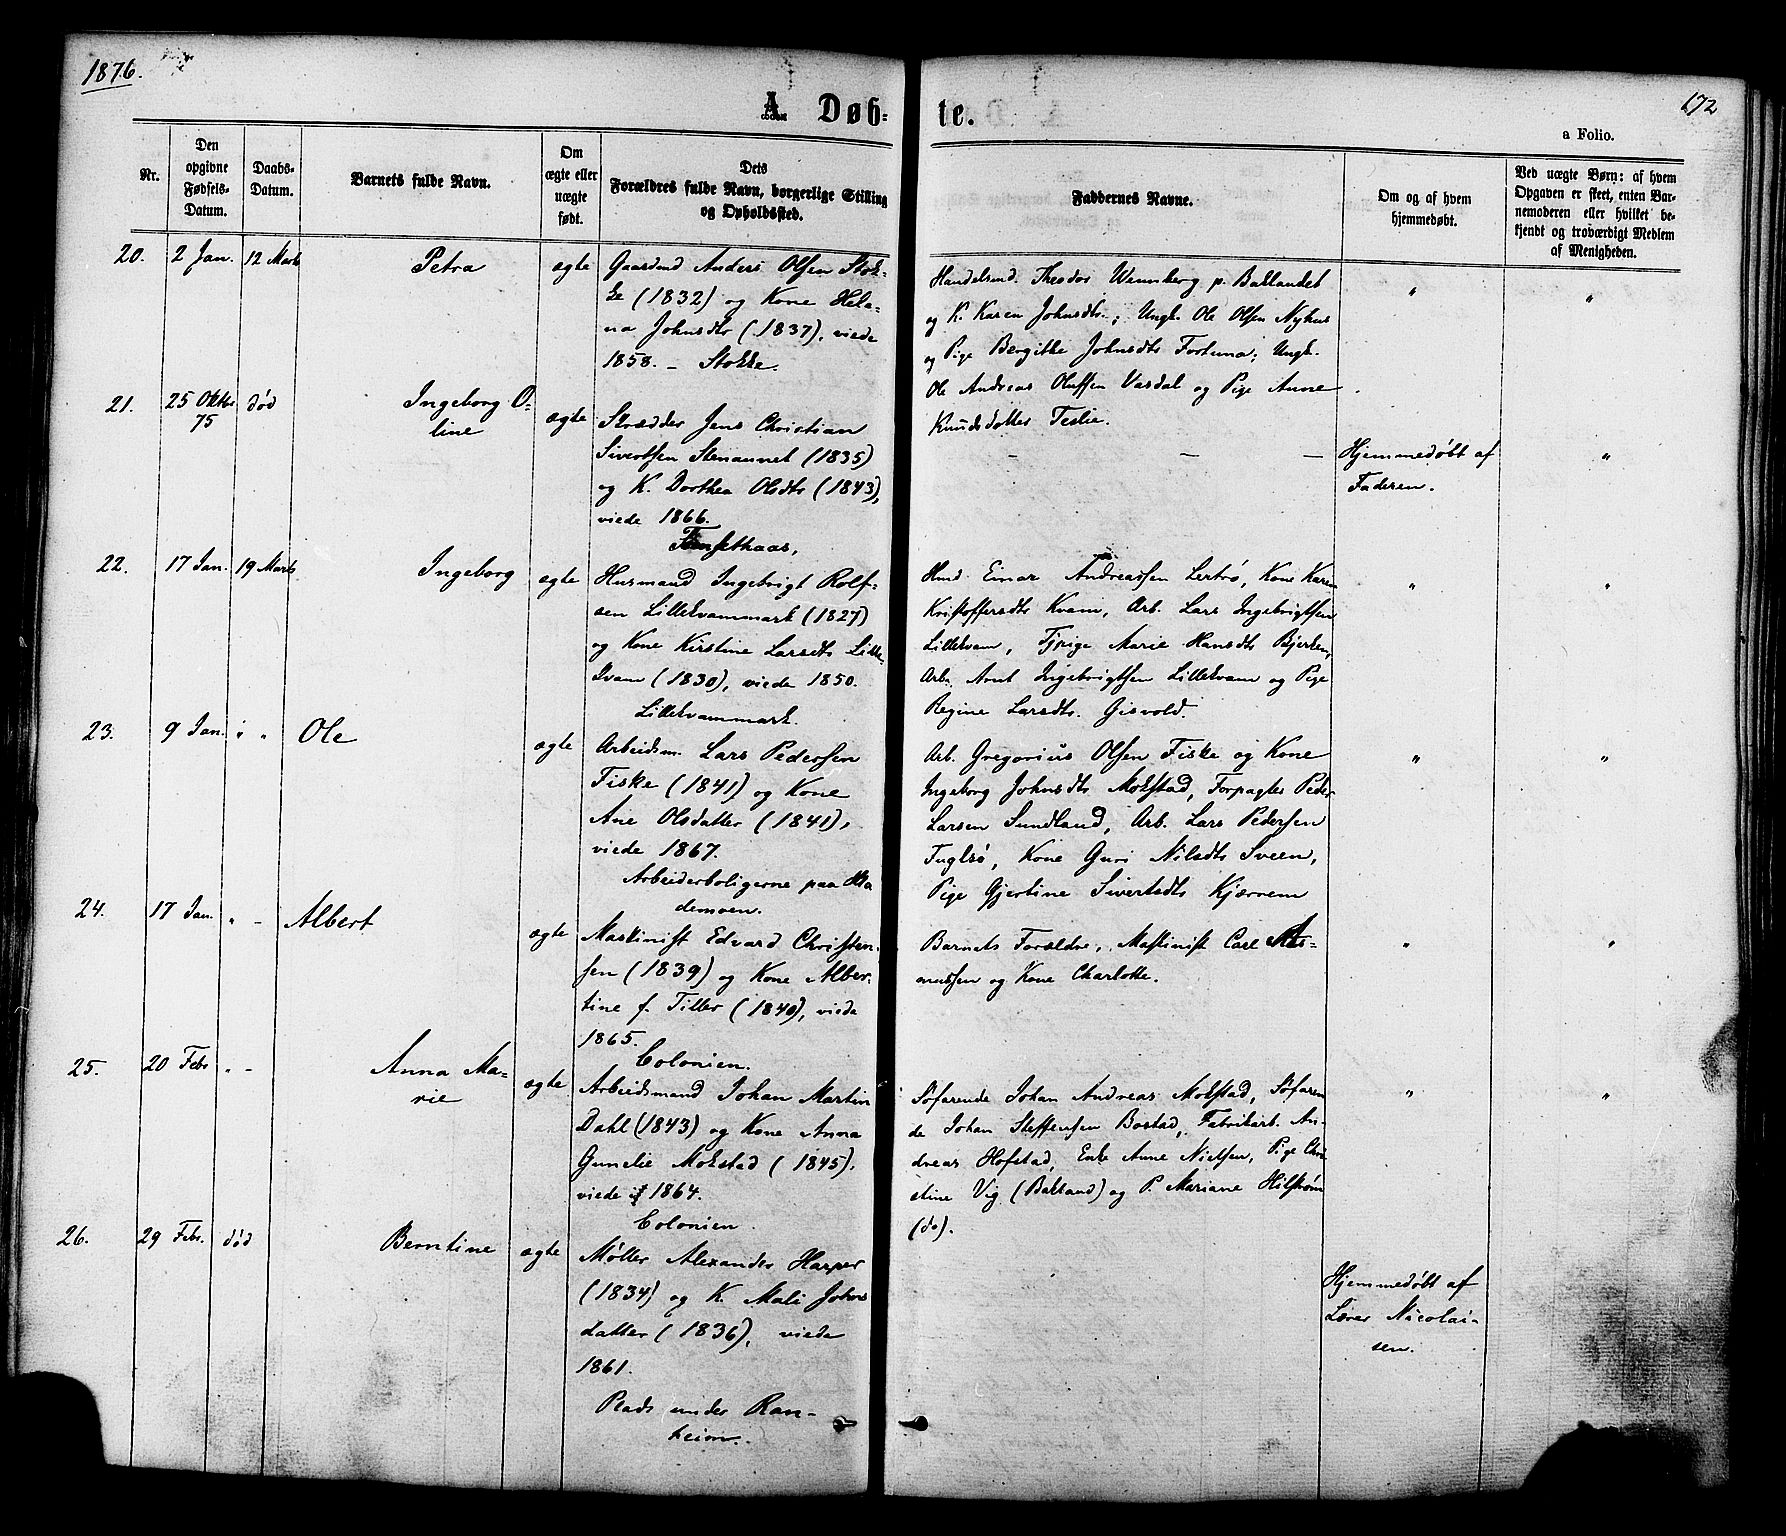 1876.
172
A Døb-
te.
a Folio.
Nr.
Den
opgivne
Fødsels-
Datum.
Daabs-
Datum.
Barnets fulde Navn.
Om
ægte eller
uægte
født.
Dets
Forældres fulde Navn, borgerlige Stilling
og Opholdssted.
Faddernes Navne.
Om og af hvem
hjemmedøbt.
Ved uægte Børn: af hvem
Opgaven er skeet, enten Bar-
nemoderen eller hvilket be-
kjendt og troværdigt Medlem
af Menigheden.
20. 2 Jan. 12 Marts Petra ægte
Gaardmd Anders Olsen Stok-
ke (1832) og Kone Hele-
na Johnsdtr (1837), viede
1858. - Stokke.
Handelsmd. Theodor Wennberg p. Baklandet
og K. Karen Johnsdtr.; Ungk. Ole Olsen Nyhus
og Pige Bergitte Johnsdtr Fortuna; Ungk.
Ole Andreas Oluffsen Vardal og Pige Anne
Knudsdotter Teslie.
" "
21. 25 Oktbr
75 død Ingeborg O-
line ægte
Strædder Jens Christian
Sivertsen Stenaunet (1835)
og K. Dorthea Olsdtr (1843),
viede 1866.
- - -
Hjemmedøbt af
Faderen.
"
22. 17 Jan. 19 Marts Ingeborg ægte
Husmand Ingebrigt Rolf-
sen Lillekvammark (1827)
og Kone Kirstine Larsdtr Lille-
kvam (1830), viede 1850.
Lillekvammark.
Hmd. Einar Andreassen Lertrø, Kone Karen
Kristoffersdtr Kvam, Arb. Lars Ingebrigtsen
Lillekvam, Tjpige Marie Hansdtr Bjerken,
Arb. Arnt Ingebrigtsen Lillekvam og Pige
Regine Larsdtr. Gisvold.
" "
23. 9 Jan. " " Ole ægte
Arbeidsm. Lars Pedersen
Fiske (1841) og Kone
Ane Olsdatter (1841),
viede 1867.
Arbeiderboligerne paa Hla
demoen.
Arb. Gregorius Olsen Fiske og Kone
Ingeborg Johnsdtr Mokstad, Forpagter Peder
Larsen Sundland, Arb. Lars Pedersen
Fuglsø, Kone Guri Nilsdtr Sveen,
Pige Gjertine Sivertsdtr Kjærnem
" "
24. 17 Jan. " - Albert ægte
Maskinist Edvard Christen-
sen (1839) og Kone Alber-
tine f. Tiller (1840), viede
1865.
Colonien.
Barnets Forældre, Maskinist Carl As-
mussen og Kone Charlotte.
" "
25. 20 Febr " - Anna Ma-
rie ægte
Arbeidsmand Johan Martin
Dahl (1843) og Kone Anna
Gunelie Mokstad (1845),
viede 1864.
Colonien.
Søfarende Johan Andreas Mokstad, Søfaren
de Johan Steffensen Bostad, Fabrikarb. An-
dreas Hofstad, Enke Anne Nielsen, Pige Chri
stine Vig (Bakland) og P. Mariane Hilstrøm
(do).
" "
26. 29 Febr. død Berntine ægte
Møller Alexander Harper
(1834) og K. Mali Johns
datter (1836), viede
1861.
Plads under Ran-
heim.
Hjemmedøbt af
Lærer Nicolai-
sen.